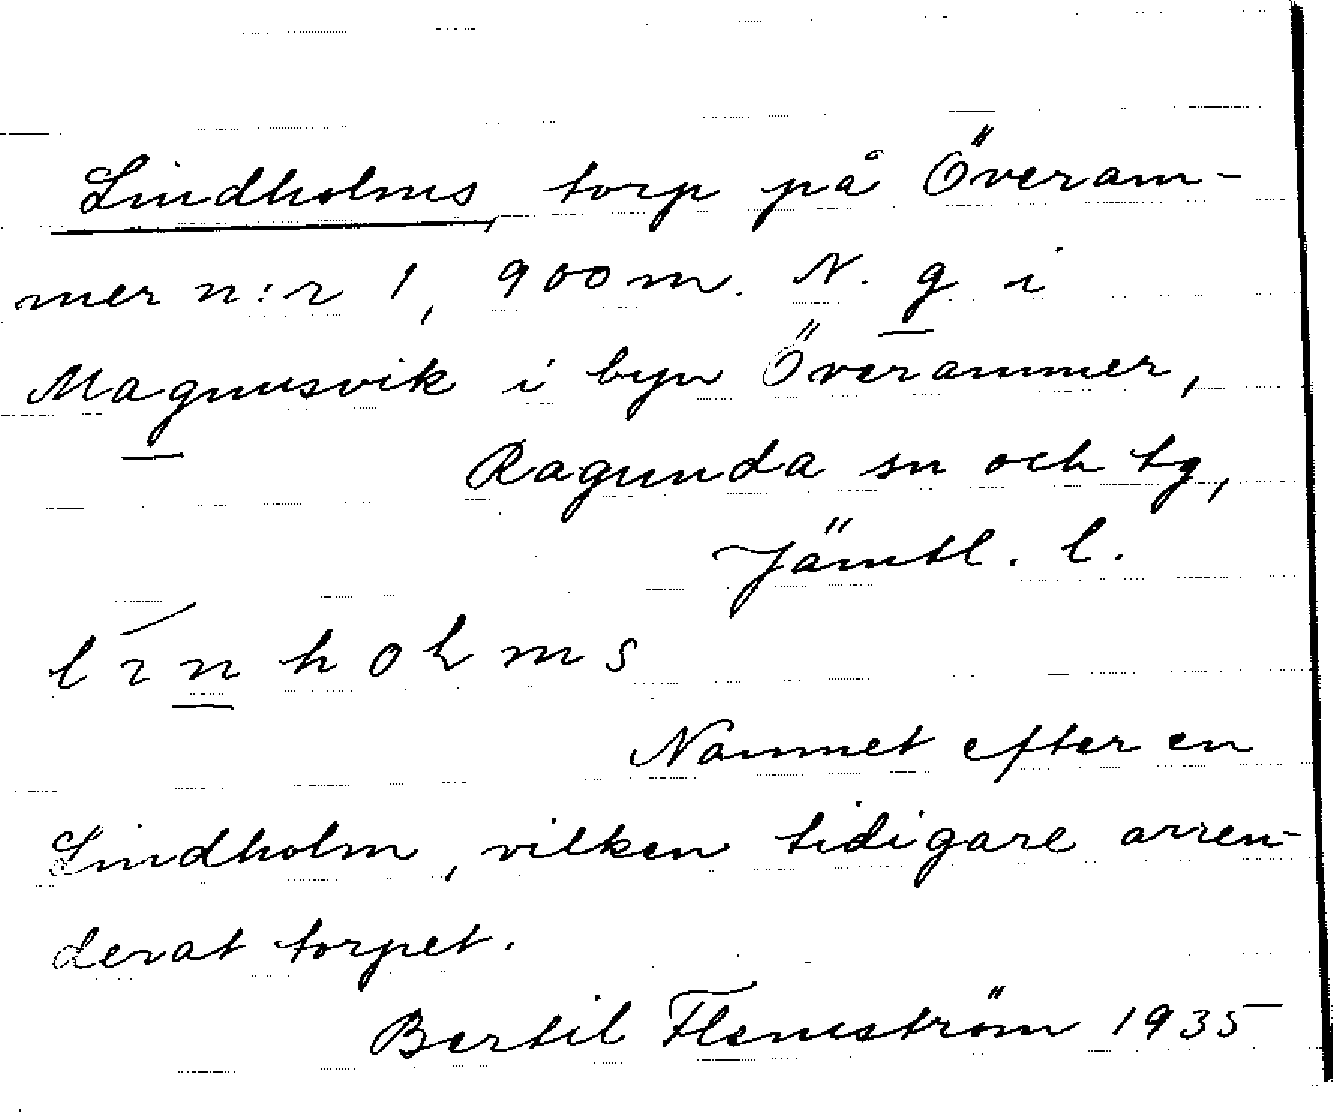 Lindholms, torp på Överam-
mer n:r 1, 900 m. N. g i
Magnusvik i byn Överammer,
Ragunda sn och tg,
Jämtl. l.
línholms
Namnet efter en
Lindholm, vilken tidigare arren-
derat torpet.
Bertil Flemström 1935